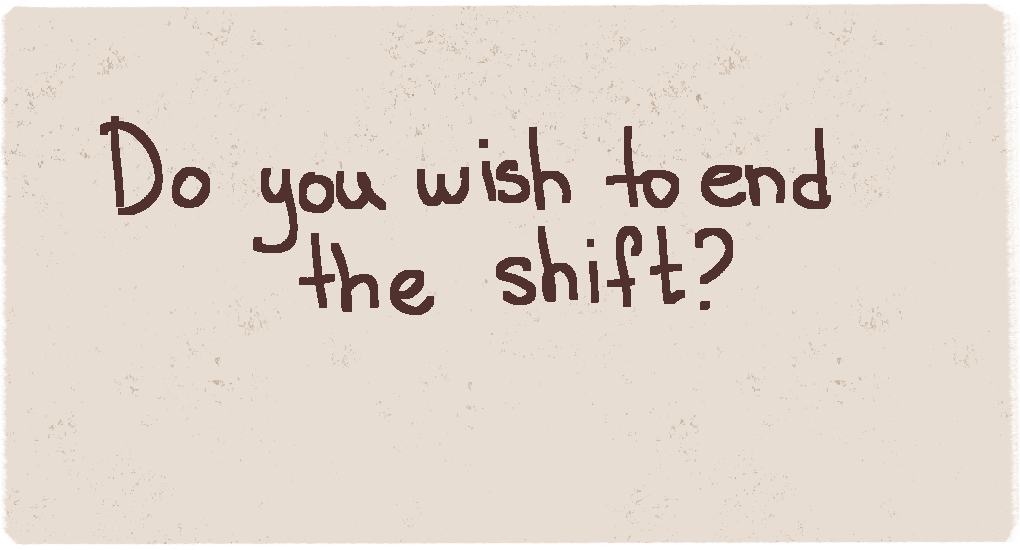 Do you wish to end
the shift?